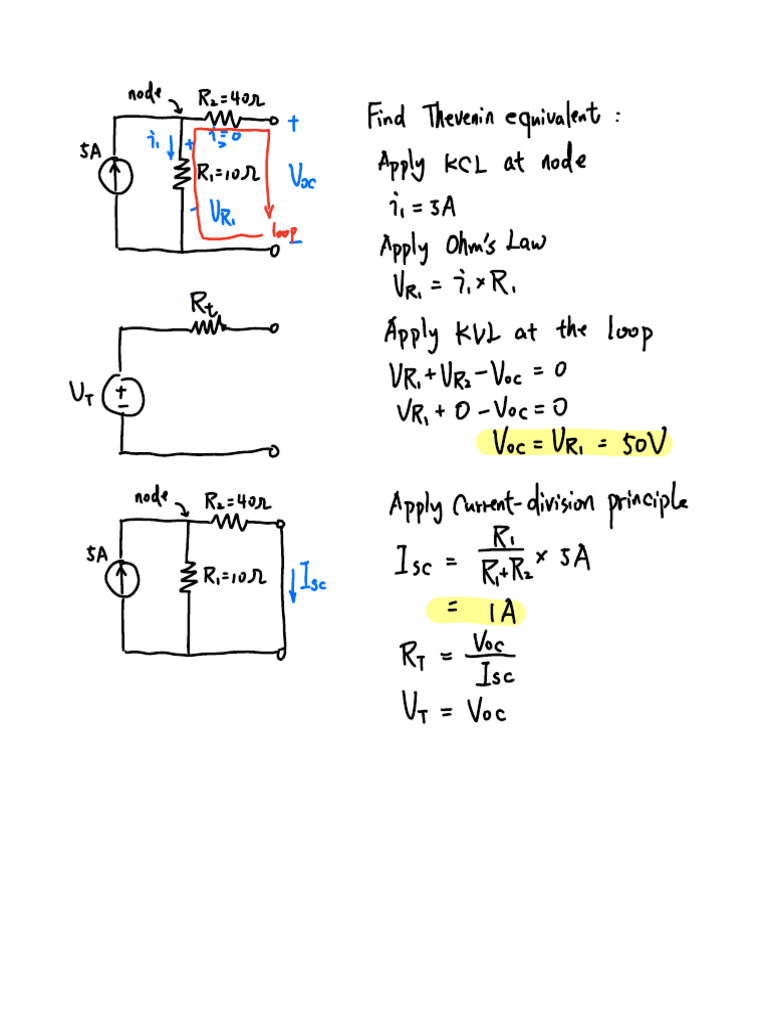 node
R₂=40Ω
+
5A
i₁
+
i₂=0
R₁=10Ω
Voc
-
VR₁
loop
-
Find Thevenin equivalent :
Apply KCL at node
i₁ = 5A
Apply Ohm's Law
VR₁ = i₁ × R₁
Rt
VT
+
-
Apply KVL at the loop
VR₁ + VR₂ - Voc = 0
VR₁ + 0 - Voc = 0
Voc = VR₁ = 50V
node
R₂=40Ω
5A
R₁=10Ω
Isc
Apply Current-division principle
Isc = R₁ / R₁+R₂ × 5A
= 1A
RT = Voc / Isc
VT = Voc